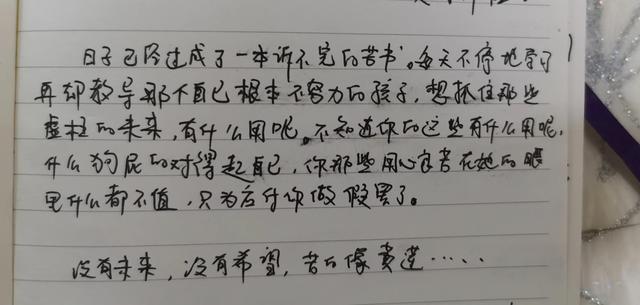 日子已经过成了一本诉不完的苦书。每天不停地学习
再却教导那个自己根本不努力的孩子,想抓住那些
虚枉的未来,有什么用呢。不知道你的这些有什么用呢,
什么狗屁的对得起自己,你那些用心良苦在她的眼
里什么都不值,只为应付你做假罢了。
没有未来,没有希望,苦的像黄莲……